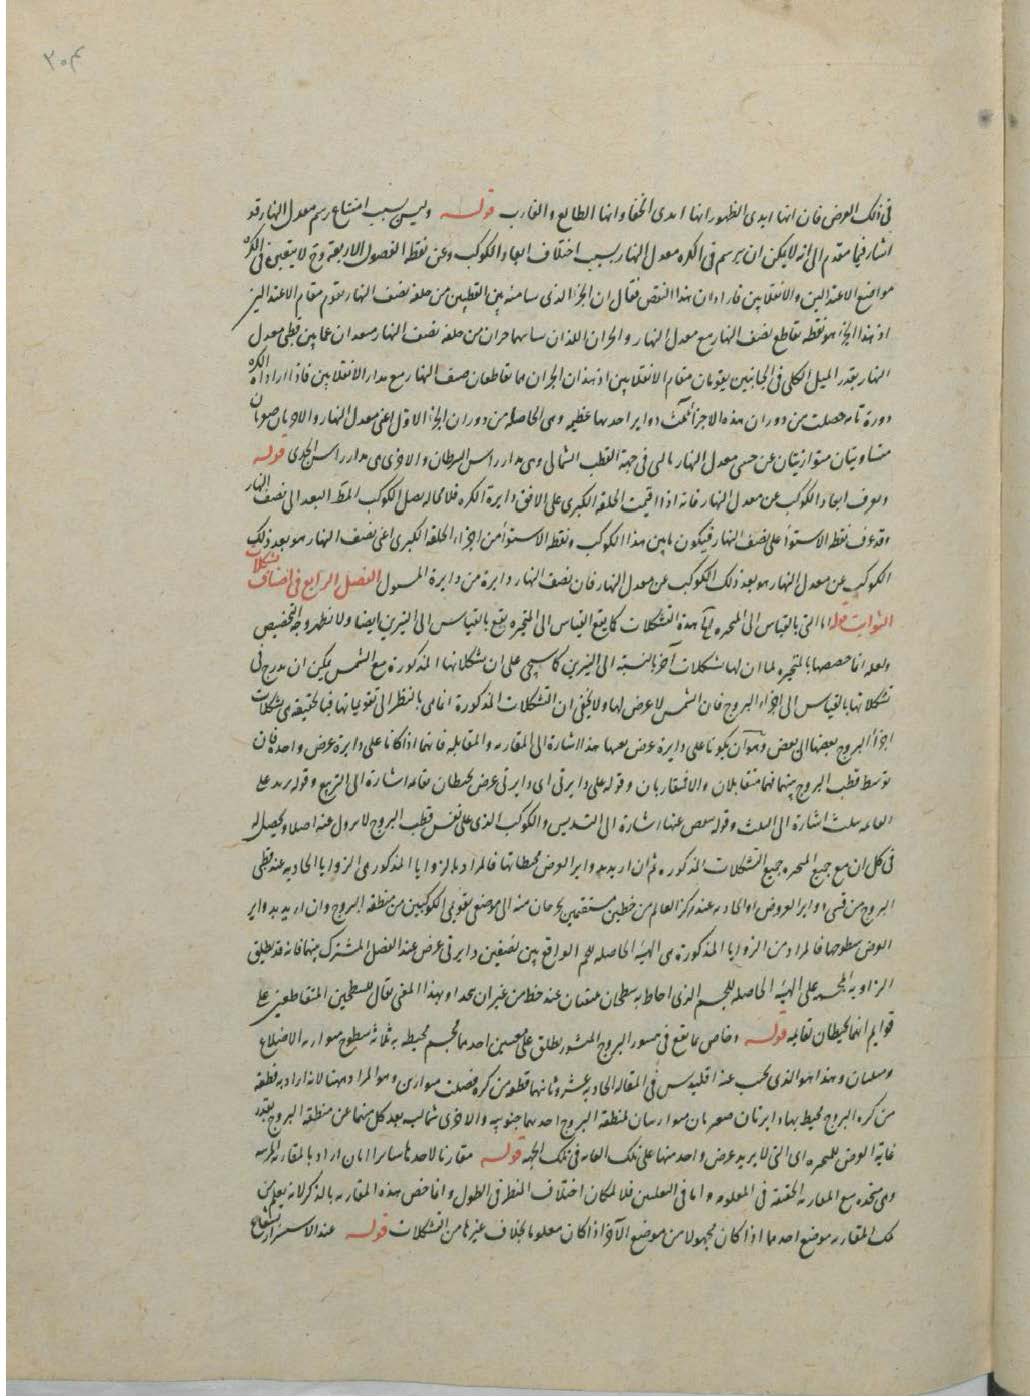 فى ذلك العرض فان انها ابدى الظهور انها ابدى الخفأ وانها الطالع والغارب قوله وليس سبب امتناع رسم معدل النهار قد
اشار فيما تقدم الى انه لا يمكن ان يرسم فى الكره معدل النهار بسبب اختلاف ابعاد الكوكب وعن نقطه الفصول الاربعة وح لا يتعين فى الكره
مواضع الاعتدالين والانقلابين فاراد ان هذا النقص فقال ان الجزأ الذى سامته بين القطبين من حلقه نصف النهار يقوم مقام الاعتدالين
اذ هذا الجزء هو نقطه تقاطع نصف النهار مع معدل النهار والجزآن اللذان من حلقه نصف النهار عما بين قطبى معدل
النهار بقدر الميل الكلى فى الجانبين يقومان مقام الانقلابين اذ هذان الجزآن مما تقاطعان نصف النهار مع مدار الانقلابين فاذا ادارا الكره
دورة تامه حصلت من دوران هذه الاجزأ ثلث دواير احديها عظيمه وهى الحاصله من دوران الجزأ الاول اعنى معدل النهار والاخريان صغيرتان
متساويتان متوازيتان عن جنبتى معدل النهار فى جهة القطب الشمالى وهى مدار راس السرطان والاخرى هى مدار راس الجدى قوله
ويعرف ابعاد الكوكب عن معدل النهار فانه اذا اقيمت الحلقه الكبرى على الافق دايرة الكره فلا محاله يصل الكوكب البعد الى نصف النهار
وقد عرف نقطه الاستوأ على نصف النهار فيكون ما بين هذا الكوكب ونقطه الاستوأ من اجزاء الحلقه الكبرى اعنى نصف النهار هو بعد ذلك
الكوكب عن معدل النهار هو بعد ذلك الكوكب عن معدل النهار فان نصف النهار دايرة من دايرة الميول الفصل الرابع فى اصناف تشكلات
الثوابت قوله اما التى بالقياس الى المتحيره هذه التشكلات كما يقع القياس الى المتحيره يقع بالقياس الى النيرين ايضا ولا يظهر وجه التخصيص
ولعله انما خصصها بالمتحيره لما ان لها تشكلات آخر بالنسبة الى النيرين كما سيجى على ان تشكلاتها المذكورة مع الشمس يمكن ان يدرج فى
تشكلاتها بالقياس الى اجزاء البروج فان الشمس لا عرض لها ولا يخفى ان التشكلات المذكورة انما هى بالنظر الى تقويماتها فبالحقيقة هى تشكلات
اجزأ البروج بعضها الى بعض وهو ان يكونا على دايرة عرض بعينها هذا اشارة الى المقارنه والمقابله فانهما اذا كانا على دايرة عرض واحده فان
توسط قطب البروج بينهما فهما متقابلان والا فمتقاربان وقوله على دايرتى اى دايرتى عرض يحيطان بقائمه اشارة الى التربيع وقوله يزيد على
القائمه بثلث اشارة الى التثليث وقوله ينقص عنها اشارة الى التسديس والكوكب الذى على نفس قطب البروج لا يزول عنه اصلا ويحصل له
فى كل ان مع جميع المتحيره جميع التشكلات المذكوره ثم ان اريد بدواير العرض محيطاتها فالمراد بالزوايا المذكورة هى الزوايا الحادثه عند قطبى
البروج من قسى دواير العروض او الحادثه عند مركز العالم من خطين مستقيمين يخرجان منه الى موضعى تقويمى الكوكبين من منطقه البروج وان اريد بدواير
العرض سطوحها فالمراد من الزوايا المذكورة هى الهيئه الحاصله للجسم الواقع بين نصفين دايرتى عرض عند الفصل المشترك بينهما فانه قد يطلق
الزاويه المجسمه على الهيئه الحاصله للجسم الذى احاط به سطحان ملتقيان عند خط من غير ان يتحدا وبهذا المعنى يقال للسطحين المتقاطعين على
قوايم انهما يحيطان بقائمه قوله وخاص بما يقع فى منشور البروج المنشور يطلق على معنيين احدهما مجسم يحيط به ثلثة سطوح متوازيه الاضلاع
ومثلثان وهذا هو الذى يحيب عنه اقليدس فى المقاله الحاديه عشر وثانيهما قطعه من كره فصلت متوازى وهو المراد ههنا لانه اراد به قطعة
من كره البروج يحيط بها دايرتان صغيرتان متوازيتان لمنطقه البروج احديهما جنوبيه والاخرى شماليه بعد كل منهما عن منطقه البروج بقدر
غاية العرض للمتحيره اى التى لا يزيد عرض واحد منها على تلك الغايه فى تلك الجهه قوله مقارنا لاحدهما ساترا اما ان اراد بالمقارنه المرئيه
وهى متحده مع المقارنه الحقيقيه فى المعلوم واما فى السفليين فلامكان اختلاف المنظر فى الطول وانما خص هذه المقارنه بالذكر لانه يعلم من
تلك المقارنه موضع احدهما اذا كان مجهولا من موضع الآخر اذا كان معلوما بخلاف غيرها من التشكلات قوله عند الاستسرار